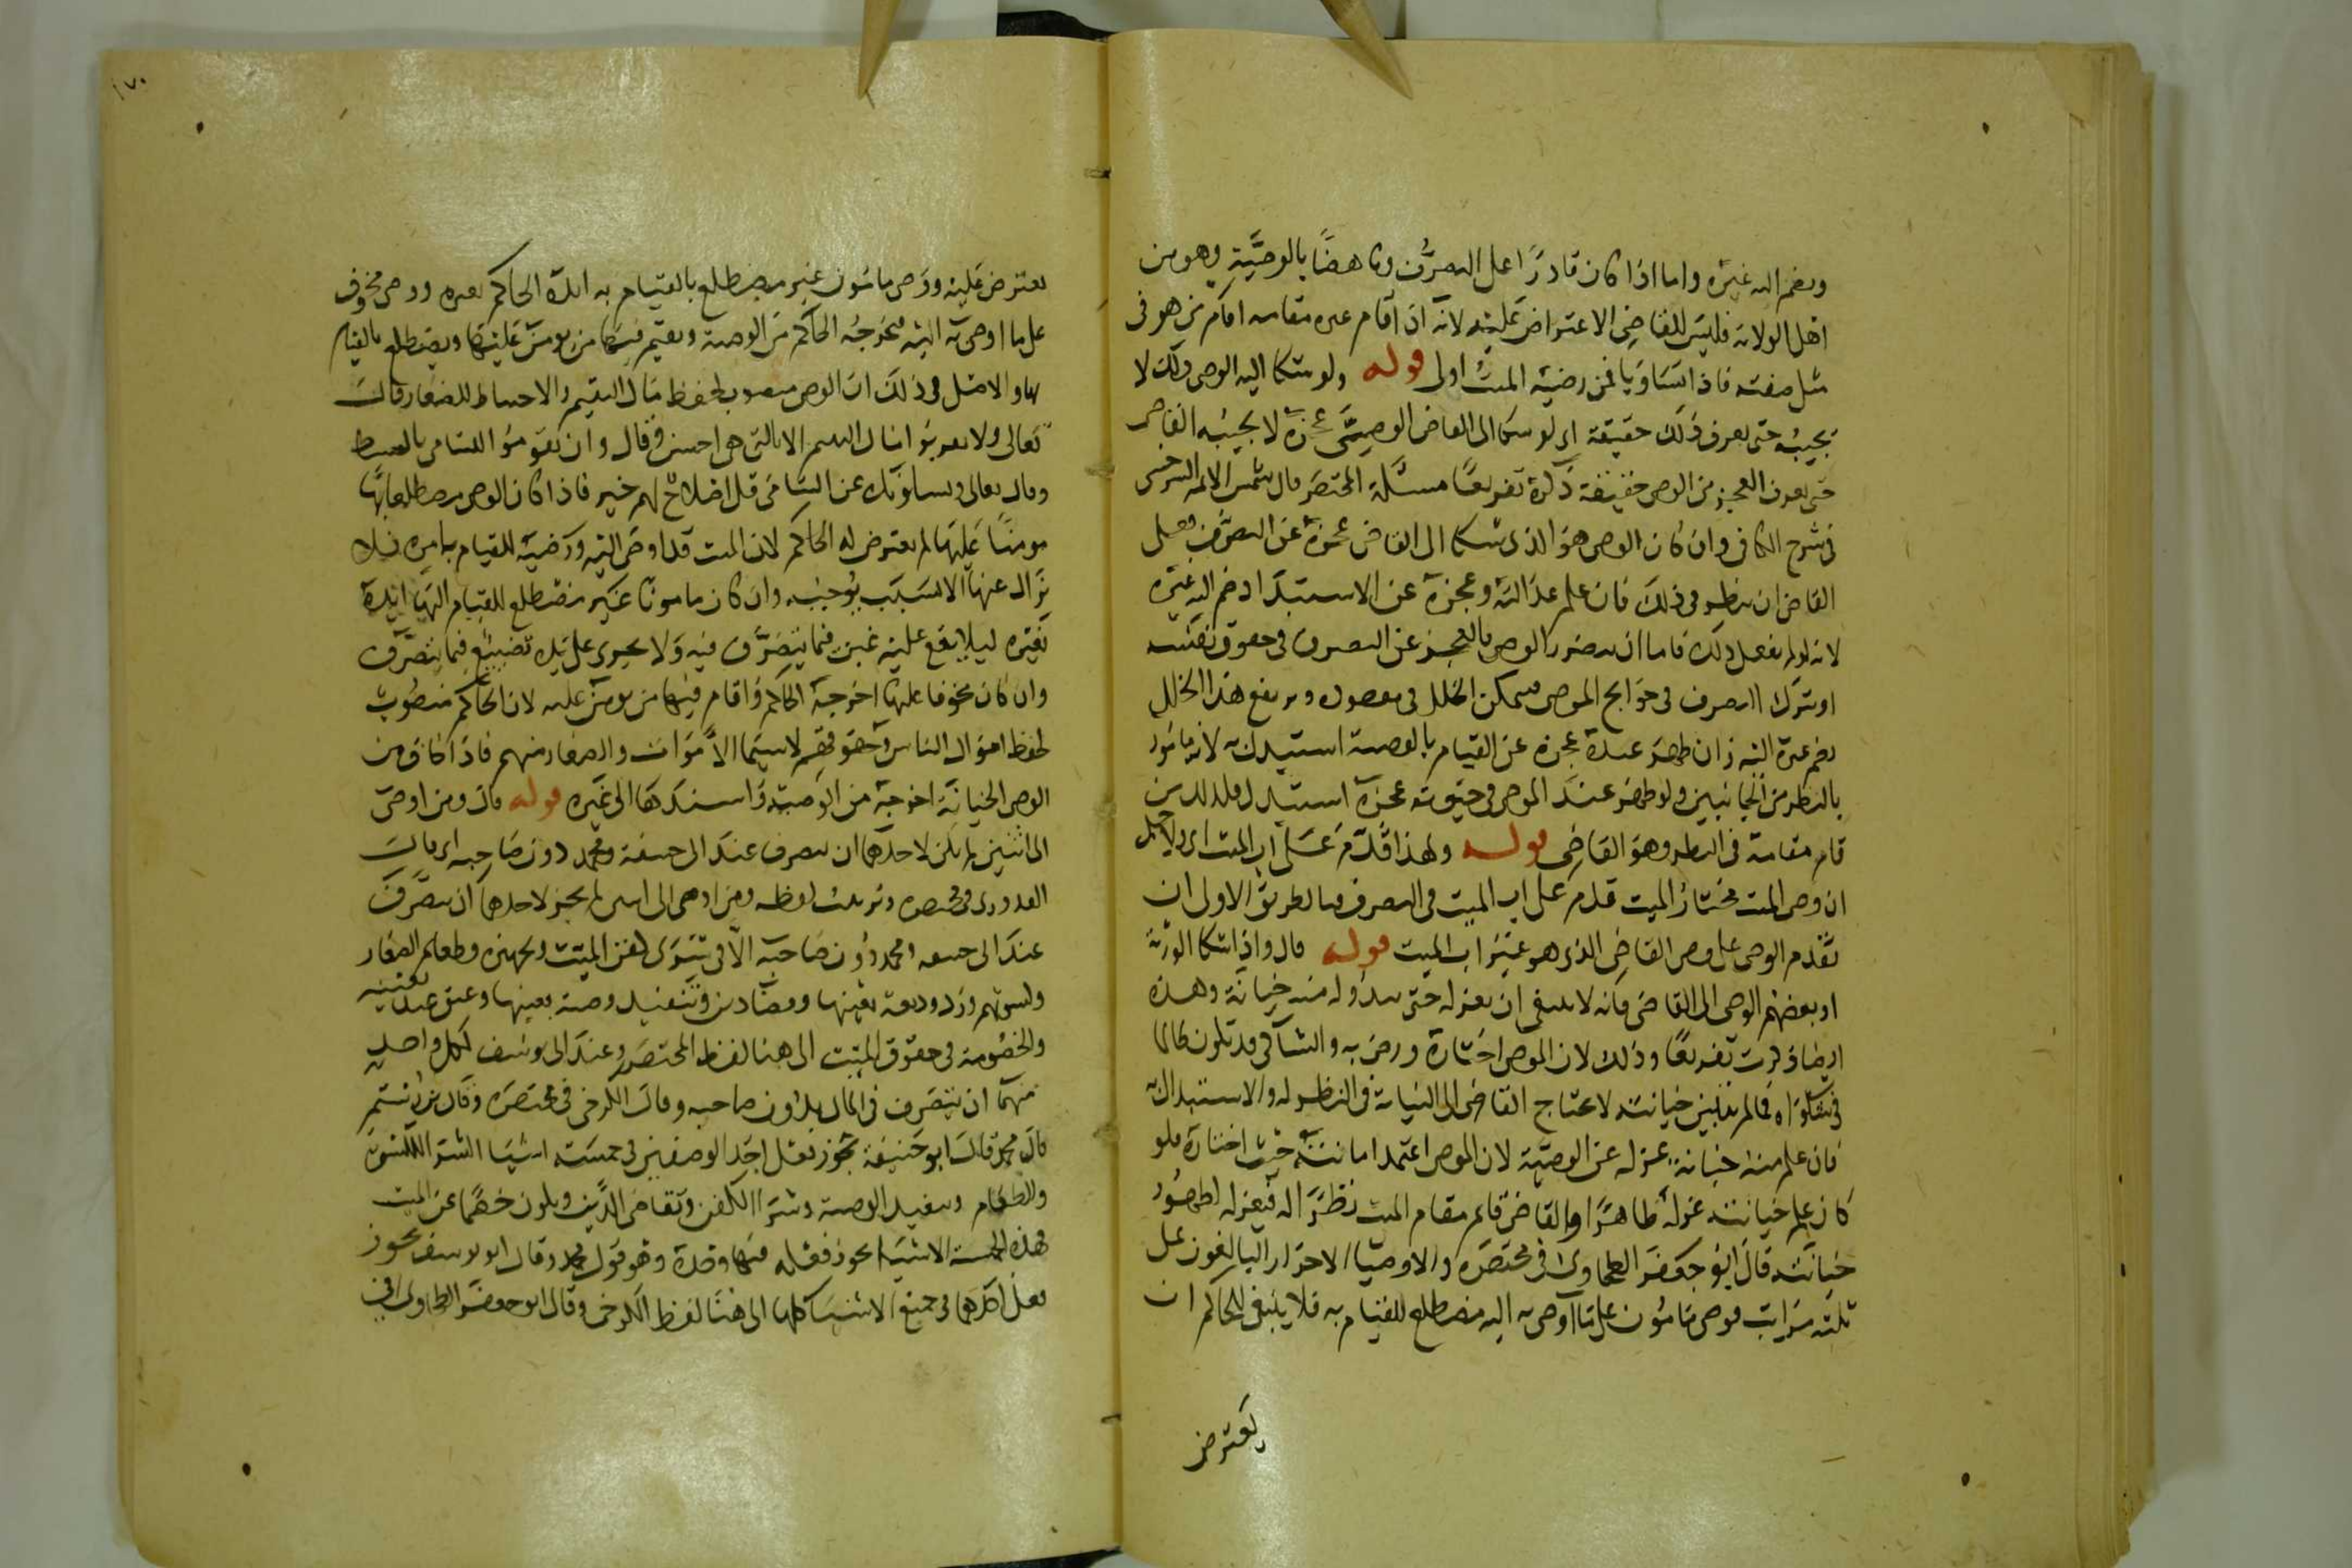 ويضم اليه غيره واما اذا كان قادرًا على التصرف وناهضًا بالوصيَّةِ وهو من
اهل الولاية فليس للقاضي الاعتراض عليه لانه اذا اقام غيره مقامه اقام من هو في
مثل صفته فاذا تساويا فمن رضيه الميت اولى قوله ولو شكا اليه الوصي ذلك لا
يجيبه حتى يعرف ذلك حقيقة اي لو شكا الى القاضي الوصي عجزه لا يجيبه القاضي
حتى يعرف العجز من الوصي حقيقة ذكره تفريعًا مسئلة المختصر قال شمس الايمه السرخسي
في شرح الكافي وان كان الوصي هو الذي شكا الى القاضي عجزه عن التصرف فعلى
القاضي ان ينظر في ذلك فان علم عدالته وعجزه عن الاستبداد ضم اليه غيره
لانه لو لم يفعل ذلك فاما ان يتضرر الوصي بالعجز عن التصرف في حقوق نفسه
او يترك التصرف في حوايج الموصي فيتمكن الخلل في مقصوده ويرتفع هذا الخلل
بضم غيره اليه فان ظهر عنده عجزه عن القيام بالوصية استبدل به لانه مامور
بالنظر من الجانبين ولو ظهر عند الموصي في حيوته عجزه استبدل فكذلك من
قام مقامه في النظر وهو القاضي قوله ولهذا قدم على اب الميت اي ولاجل
ان وصي الميت مختار الميت قدم على اب الميت في التصرف فبالطريق الاولى ان
تقدم الوصي على وصي القاضي الذي هو غير اب الميت قوله قال واذا شكا الورثة
او بعضهم الوصي الى القاضي فانه لا ينبغي ان يعزله حتى يبدو له منه خيانة وهذه
ايضا ذكرت تفريعًا وذلك لان الموصي اختاره ورضي به والشاكي قد تكون ظالما
في شكواه فما لم تتبين خيانته لا يحتاج القاضي الى النيابة في النظر له والاستبدال به
فان علم منه خيانة عزله عن الوصيَّة لان الموصي اعتمد امانته حيث اختاره فلو
كان علم خيانته عزله ظاهرًا والقاضي قايم مقام الميت نظرًا له فيعزله لظهور
خيانته قال ابو جعفر الطحاوي في مختصره والاوصياء الاحرار البالغون على
ثلثه مراتب فوصي مامون على ما اوصي به اليه مضطلع للقيام به فلا ينبغي للحاكم ان
يعترض
١٧٠
يعترض عليه ووصي مامون غير مضطلع بالقيام به ايده الحاكم بغيره ووصي مخوف
على ما اوصي به اليه فيخرجه الحاكم من الوصية ويقيم فيها من يومن عليها ويضطلع بالقيام
بها والاصل في ذلك ان الوصي منصوب لحفظ مال اليتيم والاحتياط للصغار قال
تعالى ولا تقربوا مال اليتيم الا بالتي هي احسن وقال وان تقوموا لليتامى بالقسط
وقال تعالى ويسالونك عن اليتامى قل اصلاح لهم خير فاذا كان الوصي مضطلعا بها
مومنًا عليها لم يعترض له الحاكم لان الميت قد اوصى اليه ورضيه للقيام بامره فلا
يزال عنها الا لسبب يوجبه وان كان مامونًا غير مضطلع للقيام اليها ايده
بغيره ليلا يقع عليه غبن فيما يتصرف فيه ولا يجري على يده تضييع فيما يتصرف
وان كان مخوفا عليها اخرجه الحاكم واقام فيها من يومن عليه لان الحاكم منصوب
لحفظ اموال الناس وحقوقهم لا سيما الاموات والصغار منهم فاذا خاف من
الوصي الخيانة اخرجه من الوصية واسندها الى غيره قوله قال ومن اوصى
الى اثنين لم يكن لاحدهما ان يتصرف عند ابي حنيفة ومحمد دون صاحبه اي قال
القدوري في مختصره وترتيب لفظه ومن اوصى الى اثنين لم يجز لاحدهما ان يتصرف
عند ابي حنيفه ومحمد دون صاحبه الا في شرى كفن الميت وتجهيزه وطعام الصغار
وكسوتهم ورد وديعة بعينها وقضا دين وتنفيذ وصية بعينها وعتق عبد بعينه
والخصومة في حقوق الميت الى هنا لفظ المختصر وعند ابي يوسف لكل واحد
منهما ان يتصرف في المال بدون صاحبه وقال الكرخي في مختصره وقال بن رستم
قال محمد قال ابو حنيفة يجوز فعل احد الوصيين في خمسة اشيا الشرا للكسوة
والطعام وتنفيذ الوصية وشرا الكفن وتقاضي الدين ويكون خصمًا عن الميت
فهذه الخمسة الاشيا يجوز فعله فيها وحده وهو قول محمد وقال ابو يوسف يجوز
فعل احدهما في جميع الاشيا كلها الى هنا لفظ الكرخي وقال ابو جعفر الطحاوي في